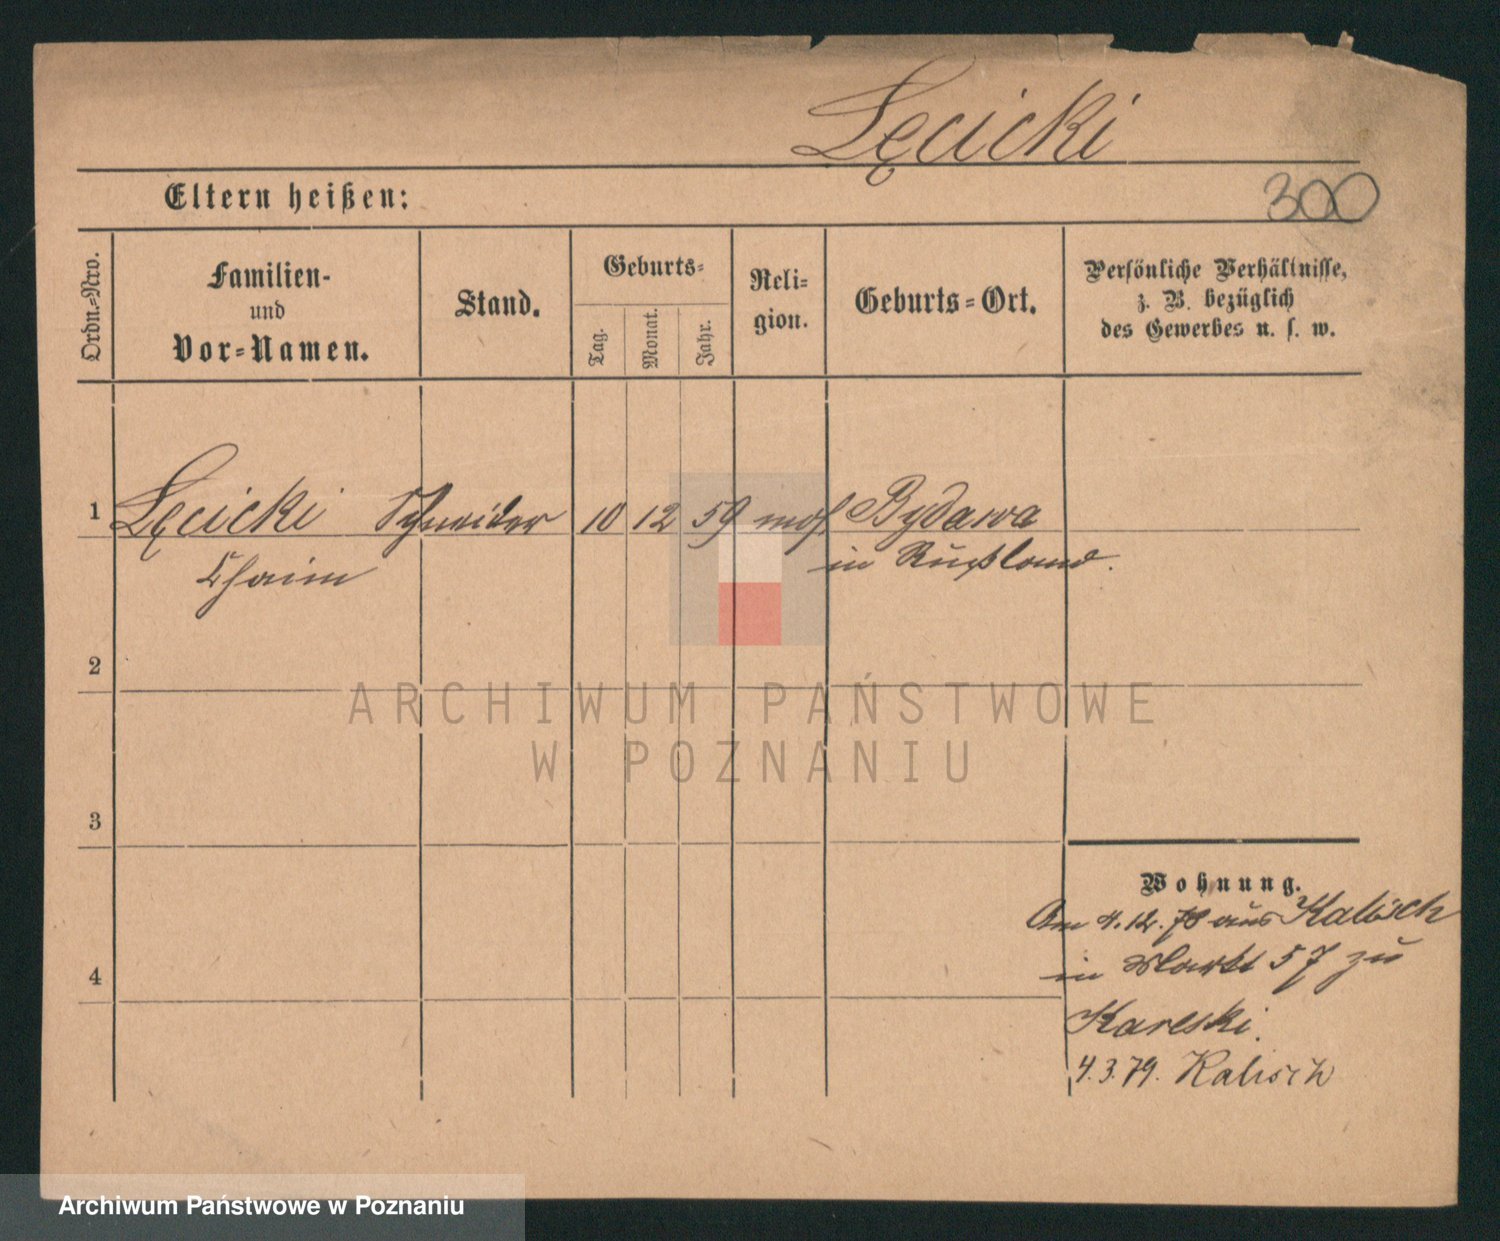 Lęcicki
Eltern heißen:
300
Ordn.-Nro.
Familien-
und
Vor-Namen.
Stand.
Geburts-
Tag.
Monat.
Jahr.
Reli-
gion.
Geburts-Ort.
Persönliche Verhältnisse,
z. B. bezüglich
des Gewerbes u. s. w.
1 Lęcicki Schneider 10 12 59 mos. Bydawa
Chaim in Rußland.
2
3
4
Wohnung.
Am 4.12.78 aus Kalisch
in Markt 57 zu
Karlski.
4.3.79. Kalisch
ARCHIWUM PAŃSTWOWE
W POZNANIU
Archiwum Państwowe w Poznaniu